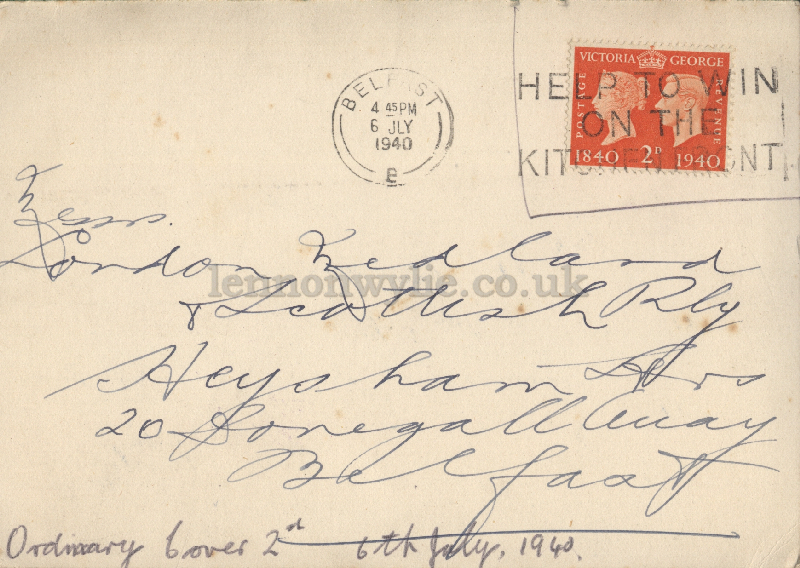 BELFAST
4 45PM
6 JLY
1940
E
VICTORIA GEORGE
POSTAGE REVENUE
1840 2D 1940
HELP TO WIN
ON THE
KITCHEN FRONT
Messrs.
London Midland
& Scottish Rly
Heysham
20 Donegall Quay
Belfast
Ordinary Cover 2d 6th July, 1940.
lennonwylie.co.uk